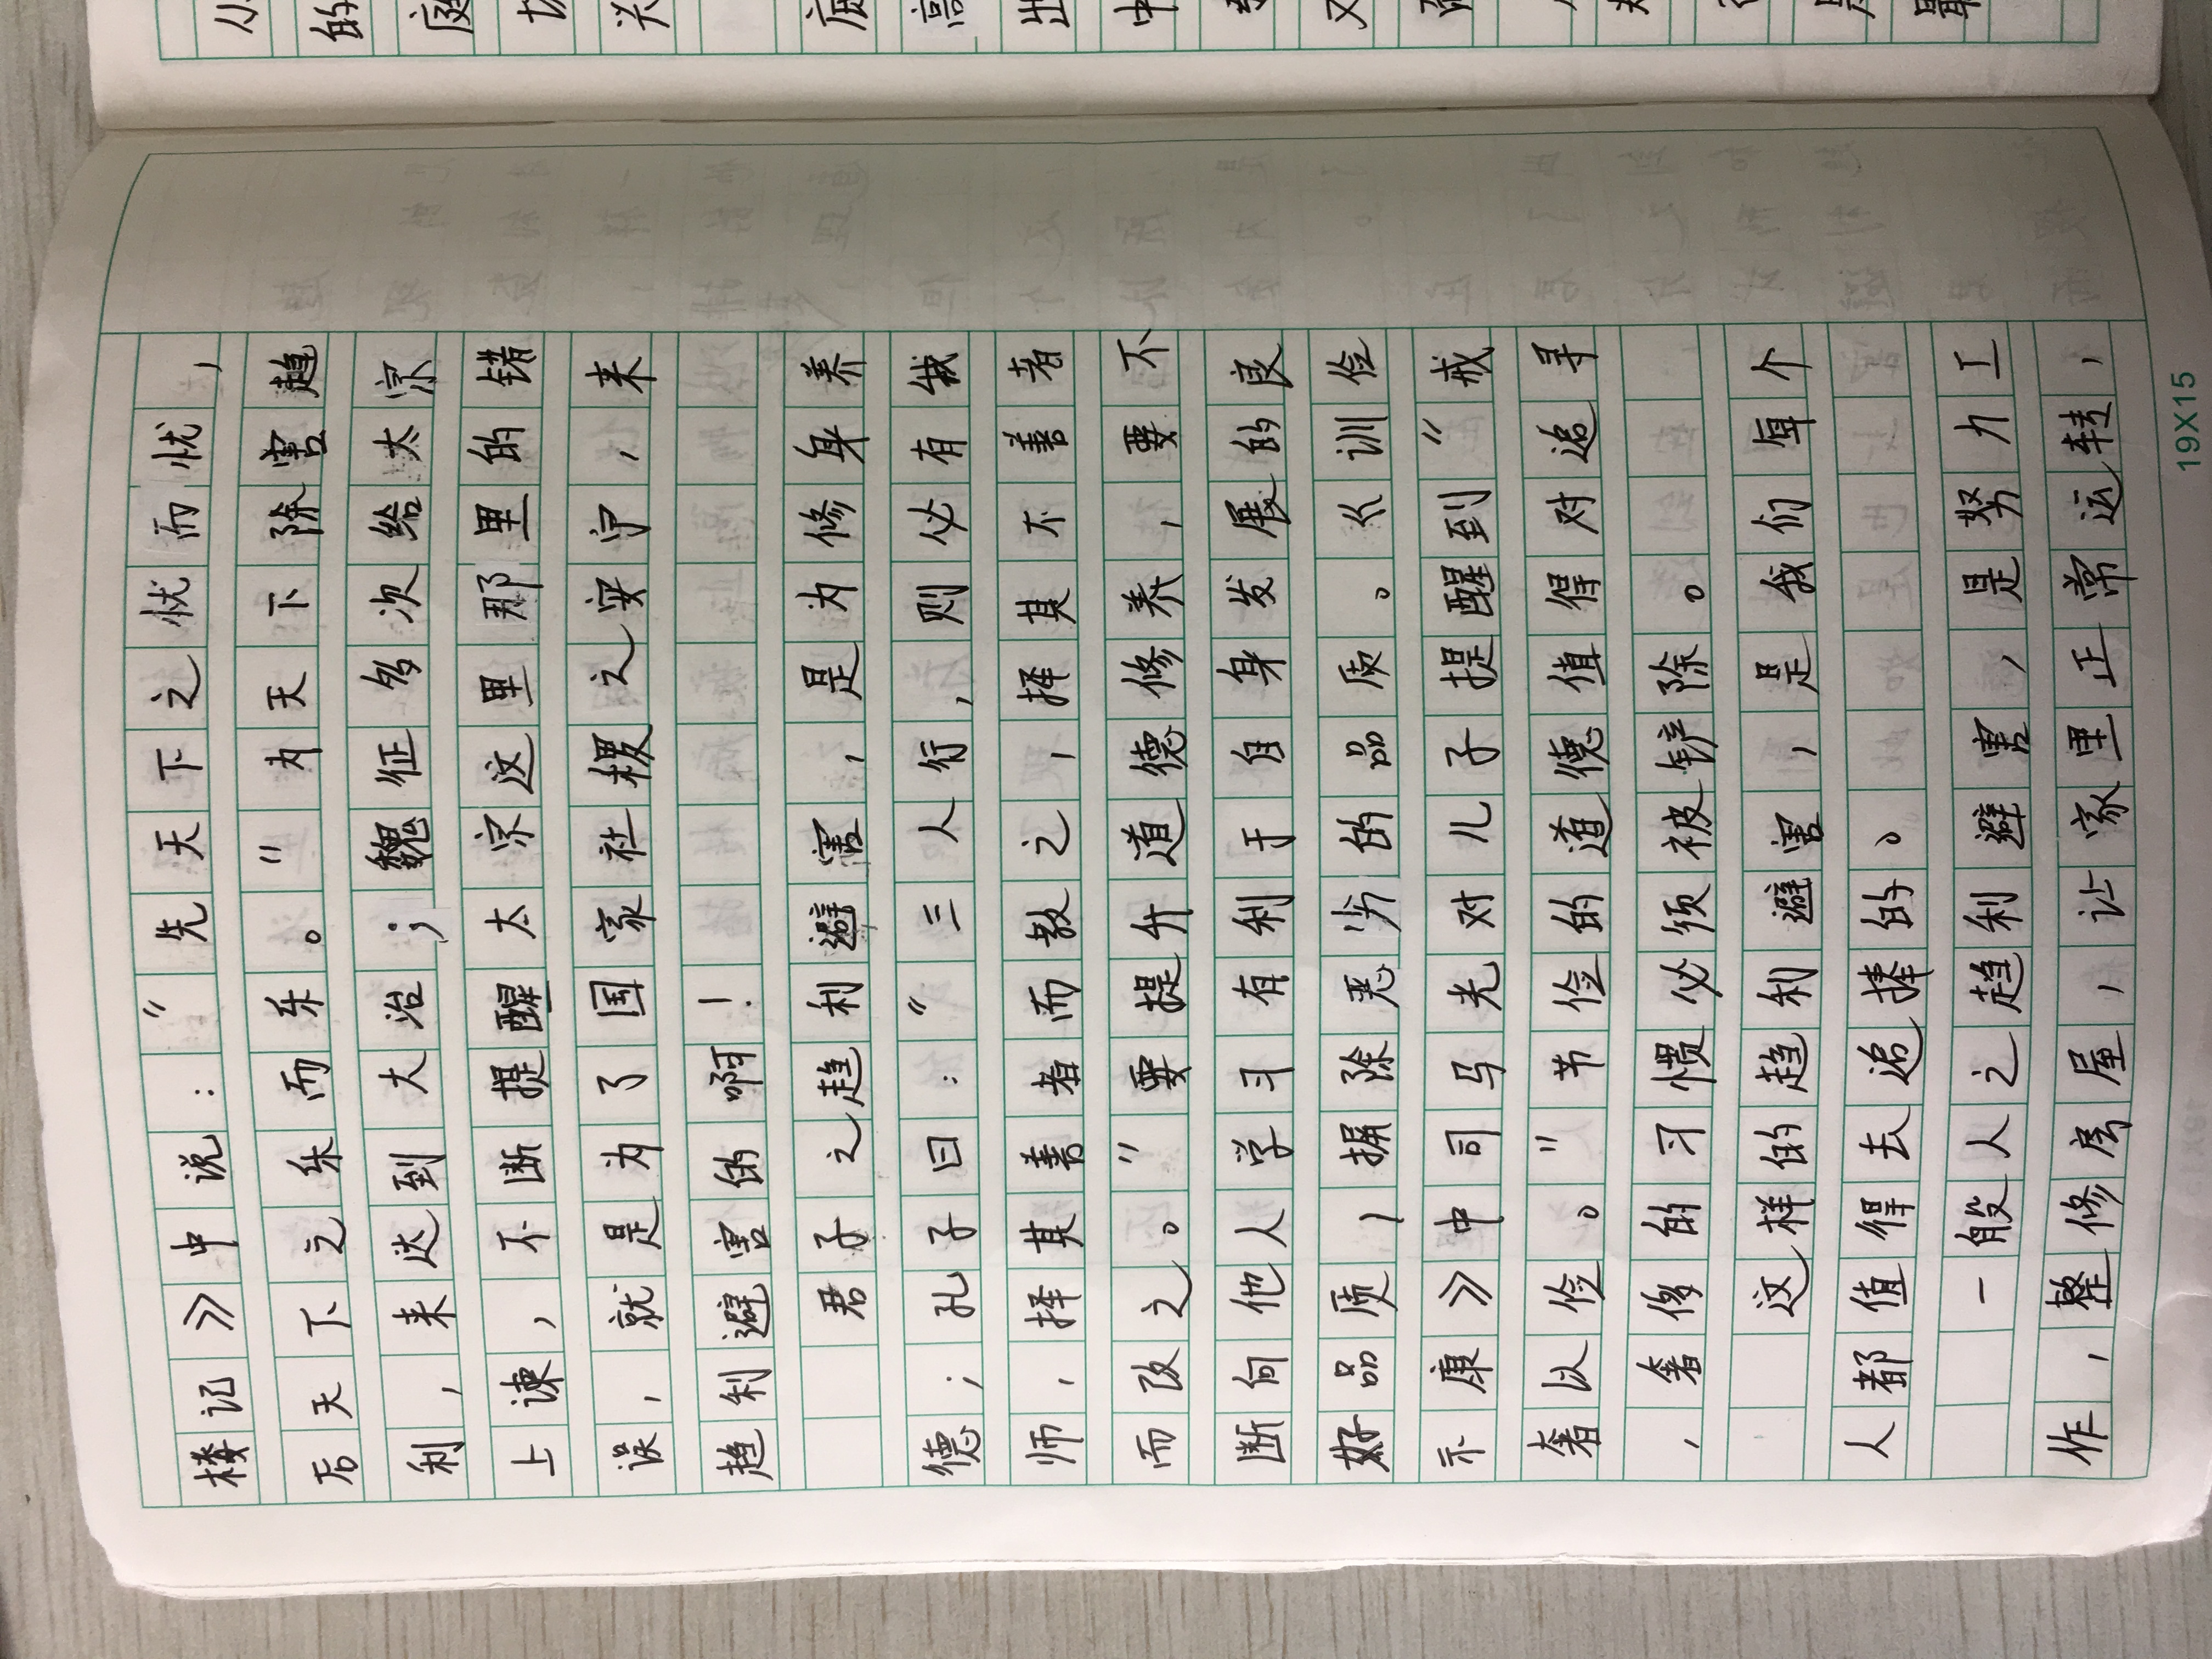 楼记》中说："先天下之忧而忧，
后天下之乐而乐。"为天下除害趋
利，来达到大治；魏征多次给太宗
上谏，不断提醒太宗这里那里的错
误，就是为了国家社稷之安宁，来
趋利避害的啊！
君子之趋利避害，是为修身养
德；孔子曰："三人行，则必有我
师，择其善者而教之，择其不善者
而改之。"要提升道德修养，要不
断向他人学习有利于自身发展的良
好品质，摒除恶劣的品质。《训俭
示康》中司马光对儿子提醒到"戒
奢以俭。"节俭的道德值得对追寻
，奢侈的习惯必须被铲除。
这样的趋利避害，是我们每个
人都值得去追捧的。
一般人之趋利避害，是努力工
作，整修房屋，让家里正常运转，
19X15
的
庭
关
底
高
出
中
又